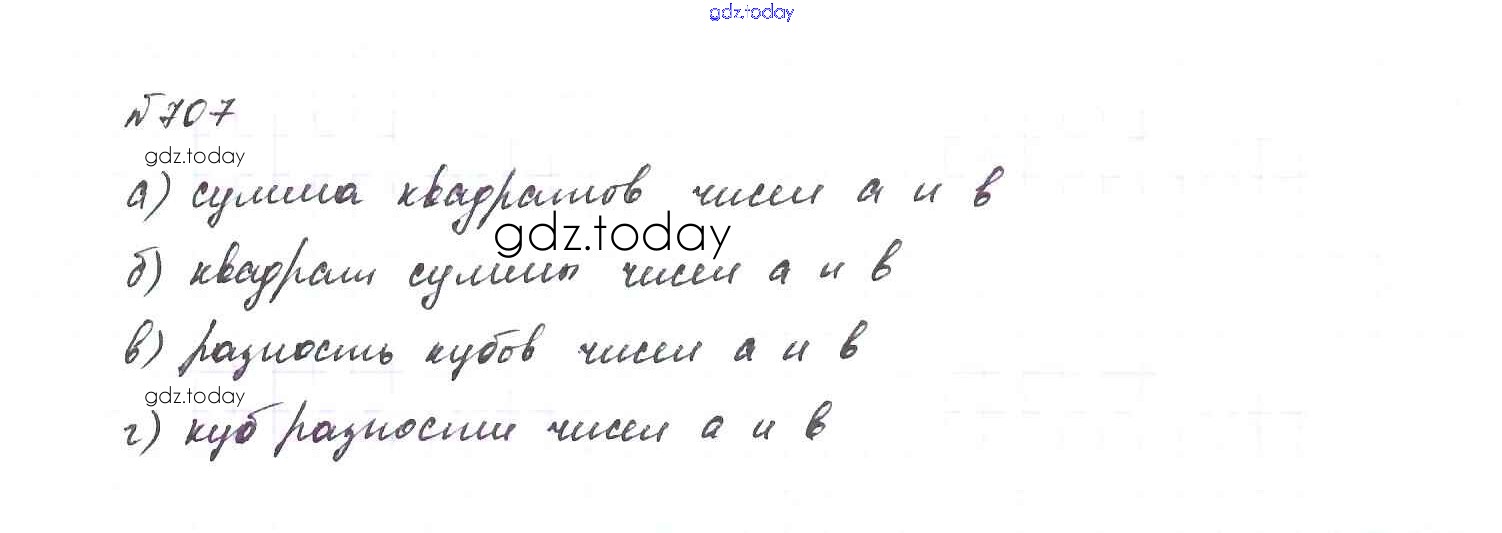 gdz.today
№707
gdz.today
а) сумма квадратов чисел а и в
gdz.today
б) квадрат суммы чисел а и в
в) разность кубов чисел а и в
gdz.today
г) куб разности чисел а и в